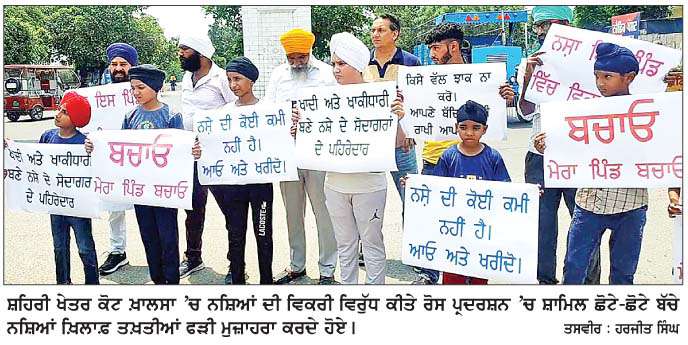 ਨਸ਼ਾ ਵਿਕਦਾ
ਪਿੰਡ
ਵਿੱਚ
ਇਸ ਪਿੰਡ
ਕਿਸੇ ਵੱਲ ਝਾਕ ਨਾ
ਕਰੋ।
ਆਪਣੇ
ਰਾਖੀ ਆਪ
ਖਾਦੀ ਅਤੇ ਖਾਕੀਧਾਰੀ
ਬਣੇ ਨਸ਼ੇ ਦੇ ਸੋਦਾਗਰਾਂ
ਦੇ ਪਹਿਰੇਦਾਰ
ਬਚਾਓ
ਮੇਰਾ ਪਿੰਡ ਬਚਾਓ
ਨਸ਼ੇ ਦੀ ਕੋਈ ਕਮੀ
ਨਹੀਂ ਹੈ।
ਆਓ ਅਤੇ ਖਰੀਦੋ।
ਖਾਦੀ ਅਤੇ ਖਾਕੀਧਾਰੀ
ਬਣੇ ਨਸ਼ੇ ਦੇ ਸੋਦਾਗਰਾਂ
ਦੇ ਪਹਿਰੇਦਾਰ
ਨਸ਼ੇ ਦੀ ਕੋਈ ਕਮੀ
ਨਹੀਂ ਹੈ।
ਆਓ ਅਤੇ ਖਰੀਦੋ।
ਬਚਾਓ
ਮੇਰਾ ਪਿੰਡ ਬਚਾਓ
LACOSTE
ਸ਼ਹਿਰੀ ਖੇਤਰ ਕੋਟ ਖ਼ਾਲਸਾ 'ਚ ਨਸ਼ਿਆਂ ਦੀ ਵਿਕਰੀ ਵਿਰੁੱਧ ਕੀਤੇ ਰੋਸ ਪ੍ਰਦਰਸ਼ਨ 'ਚ ਸ਼ਾਮਿਲ ਛੋਟੇ-ਛੋਟੇ ਬੱਚੇ
ਨਸ਼ਿਆਂ ਖ਼ਿਲਾਫ਼ ਤਖ਼ਤੀਆਂ ਫੜੀ ਮੁਜ਼ਾਹਰਾ ਕਰਦੇ ਹੋਏ।
ਤਸਵੀਰ : ਹਰਜੀਤ ਸਿੰਘ